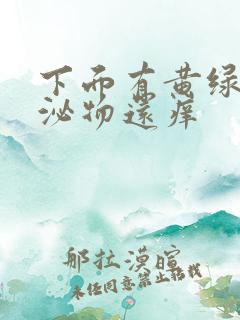 下面有黄绿
泌物还痒
那拉漠暄
未经同意禁止转载